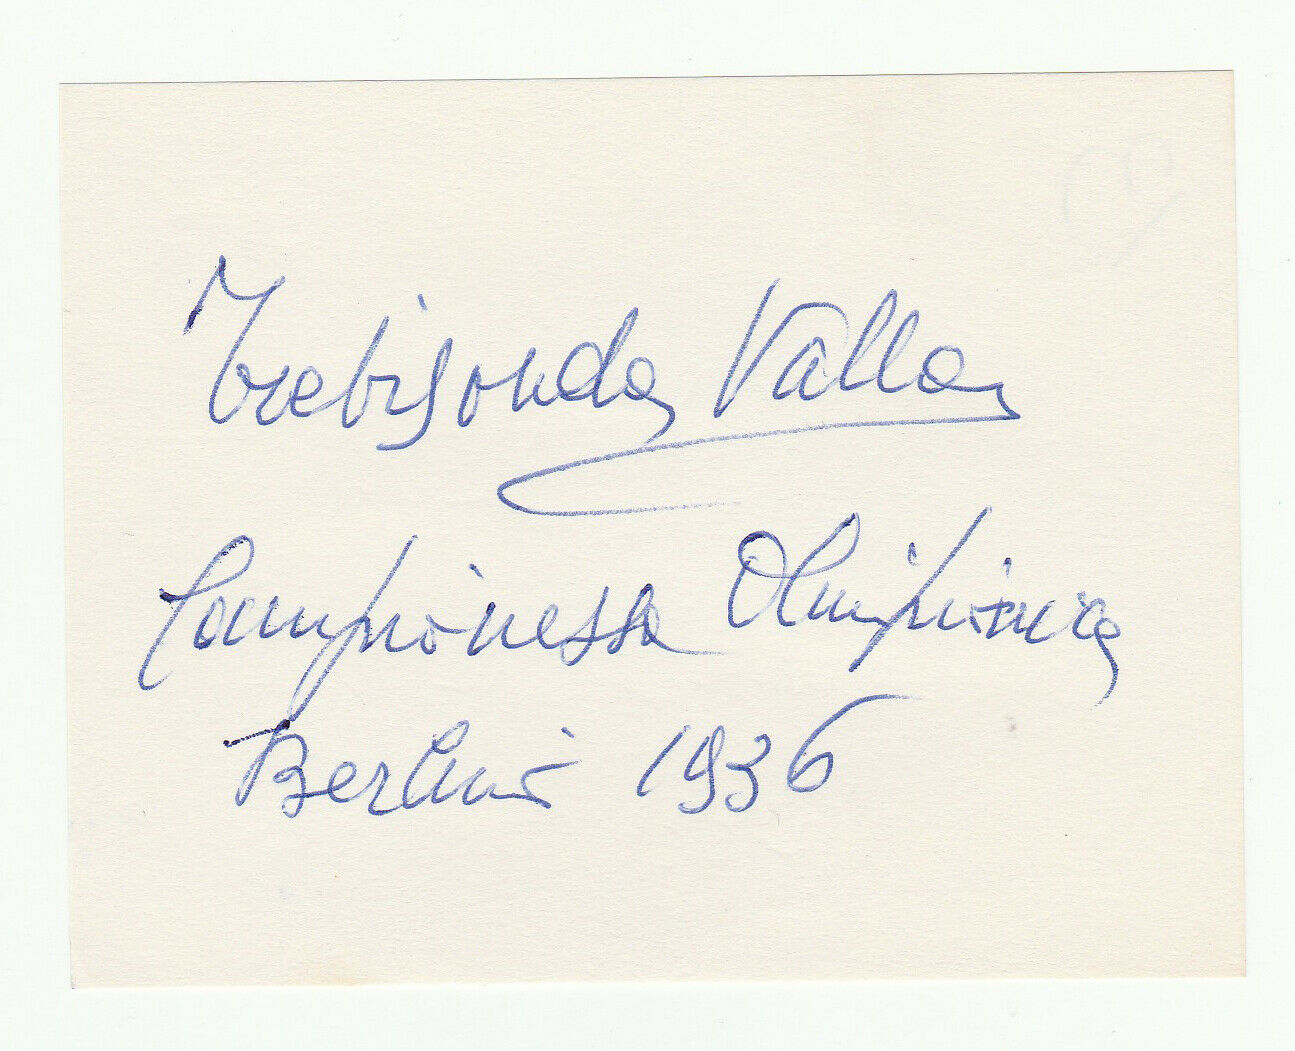 Trebisonda Valla
Campionessa Olimpionica
Berlino 1936